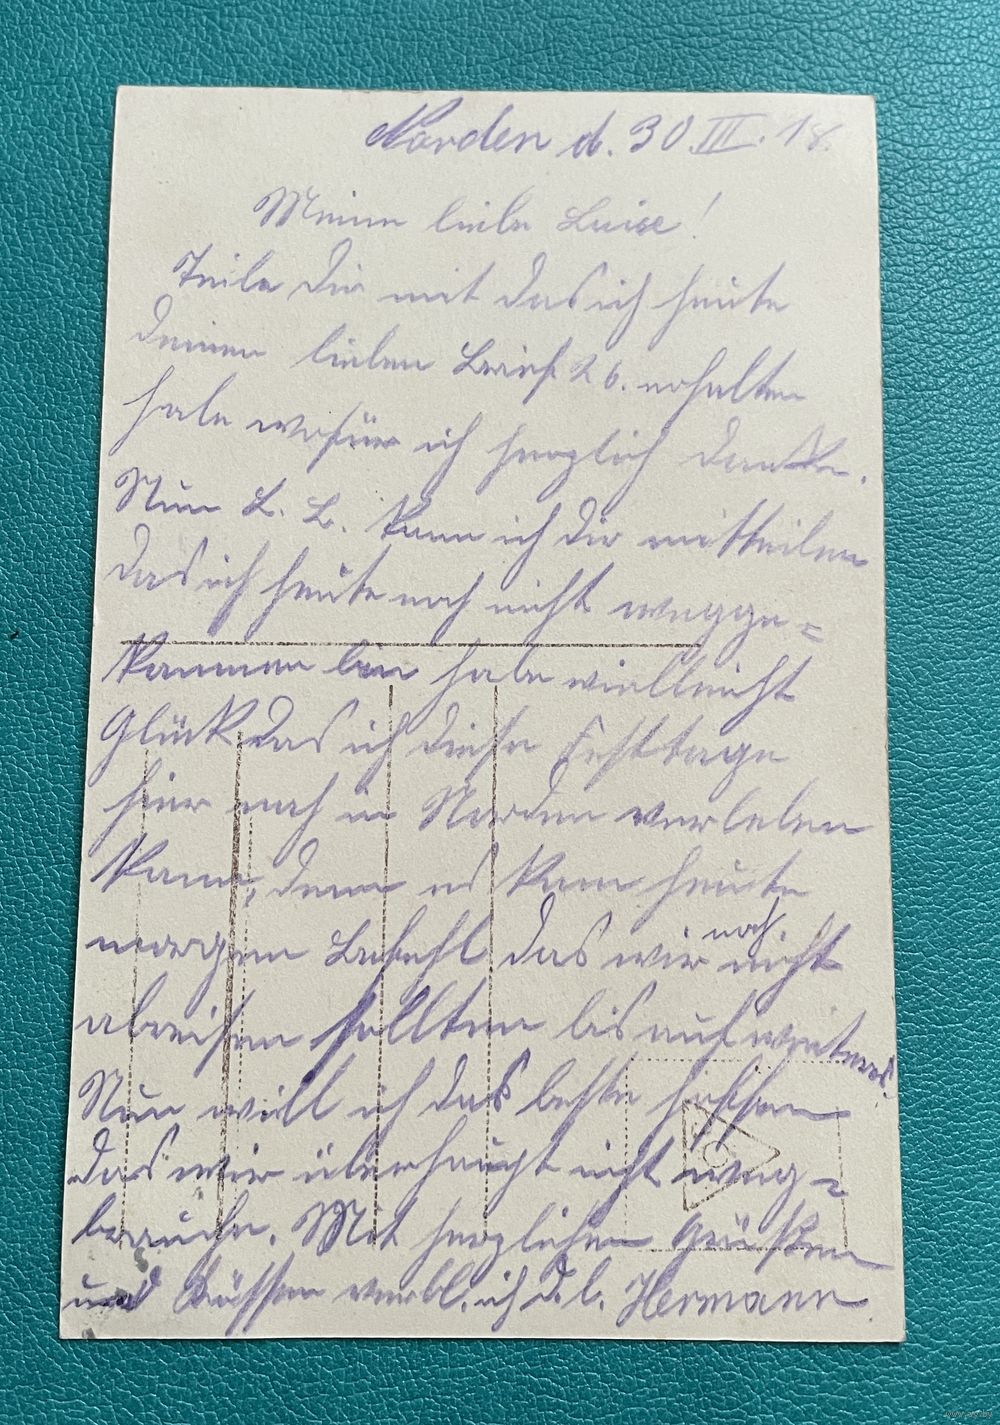 Norden d. 30.III.18.
Meine liebe Luise!
Teile Dir mit das ich heute
deinen lieben Brief 26. erhalten
habe wofür ich herzlich danke.
Nun L. L. kann ich Dir mittheilen
das ich heute noch nicht wegge=
kommen bin habe vielleicht
Glück das ich diese Festtage
hier noch in Norden verleben
kann, denn es kam heute
morgen Befehl das wir noch nicht
abreisen sollten bis auf weiteres.
Nun will ich das beste hoffen
das wir überhaupt nicht weg=
brauche. Mit herzlichen Grüßen
und Küssen verbl. ich D. l. Hermann